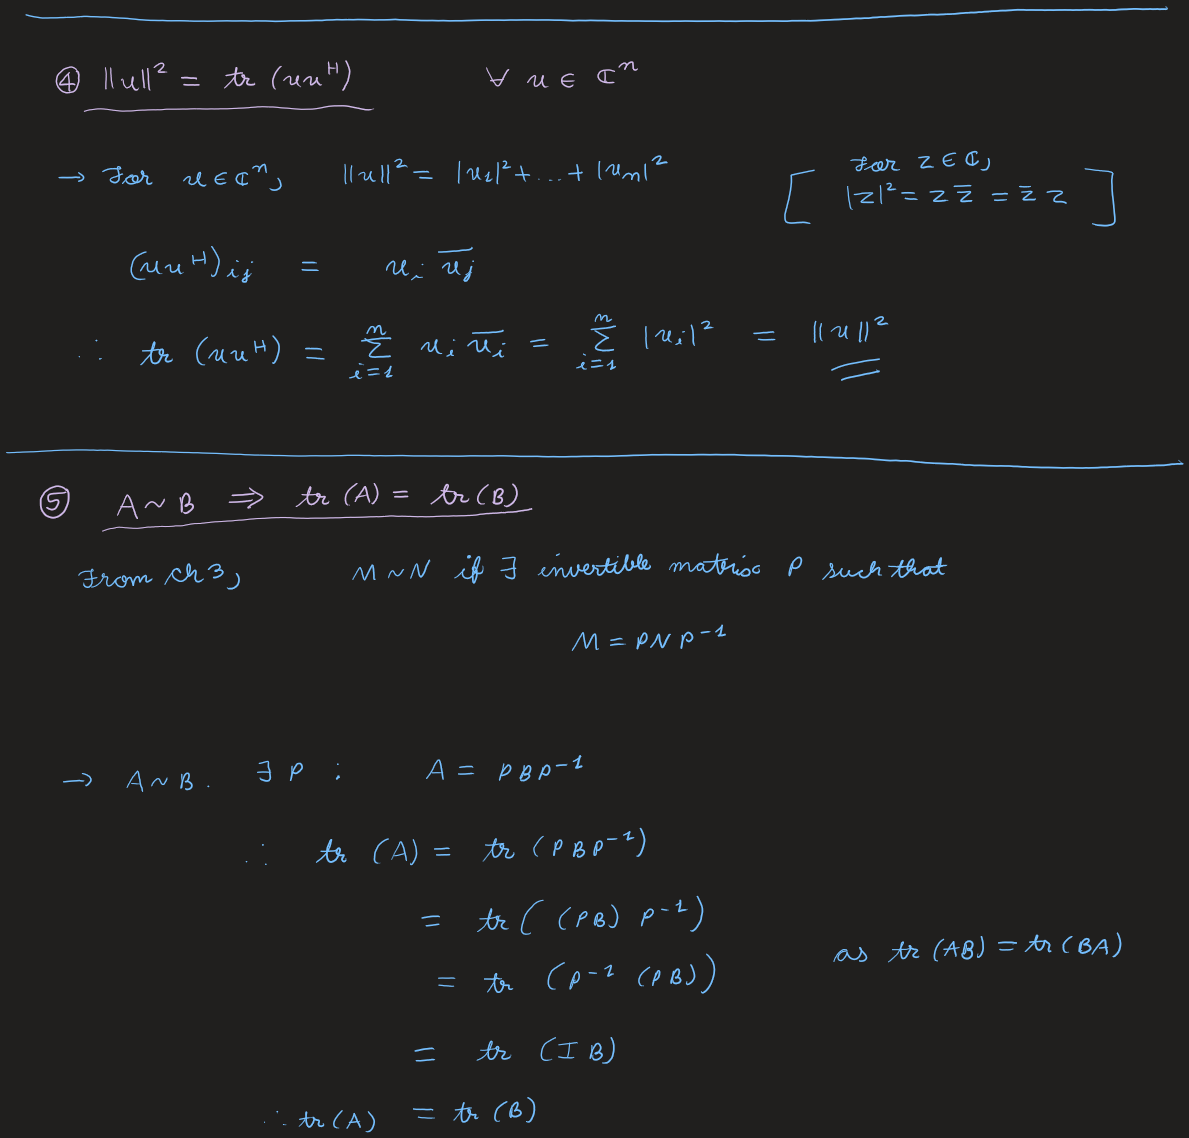 ④ ||u||² = tr (uuᴴ) ∀ u ∈ ℂⁿ
→ For u ∈ ℂⁿ, ||u||² = |u₁|² + ... + |uₙ|²
[ For z ∈ ℂ,
|z|² = z z̅ = z̅ z ]
(uuᴴ)ᵢⱼ = uᵢ u̅ⱼ
∴ tr (uuᴴ) = ∑ᵢ₌₁ⁿ uᵢ u̅ᵢ = ∑ᵢ₌₁ⁿ |uᵢ|² = ||u||²
⑤ A ~ B ⇒ tr (A) = tr (B)
From ch 3, M ~ N if ∃ invertible matrix P such that
M = PNP⁻¹
→ A ~ B. ∃ P : A = PBP⁻¹
∴ tr (A) = tr (PBP⁻¹)
= tr ( (PB) P⁻¹)
= tr (P⁻¹ (PB)) as tr (AB) = tr (BA)
= tr (I B)
∴ tr (A) = tr (B)